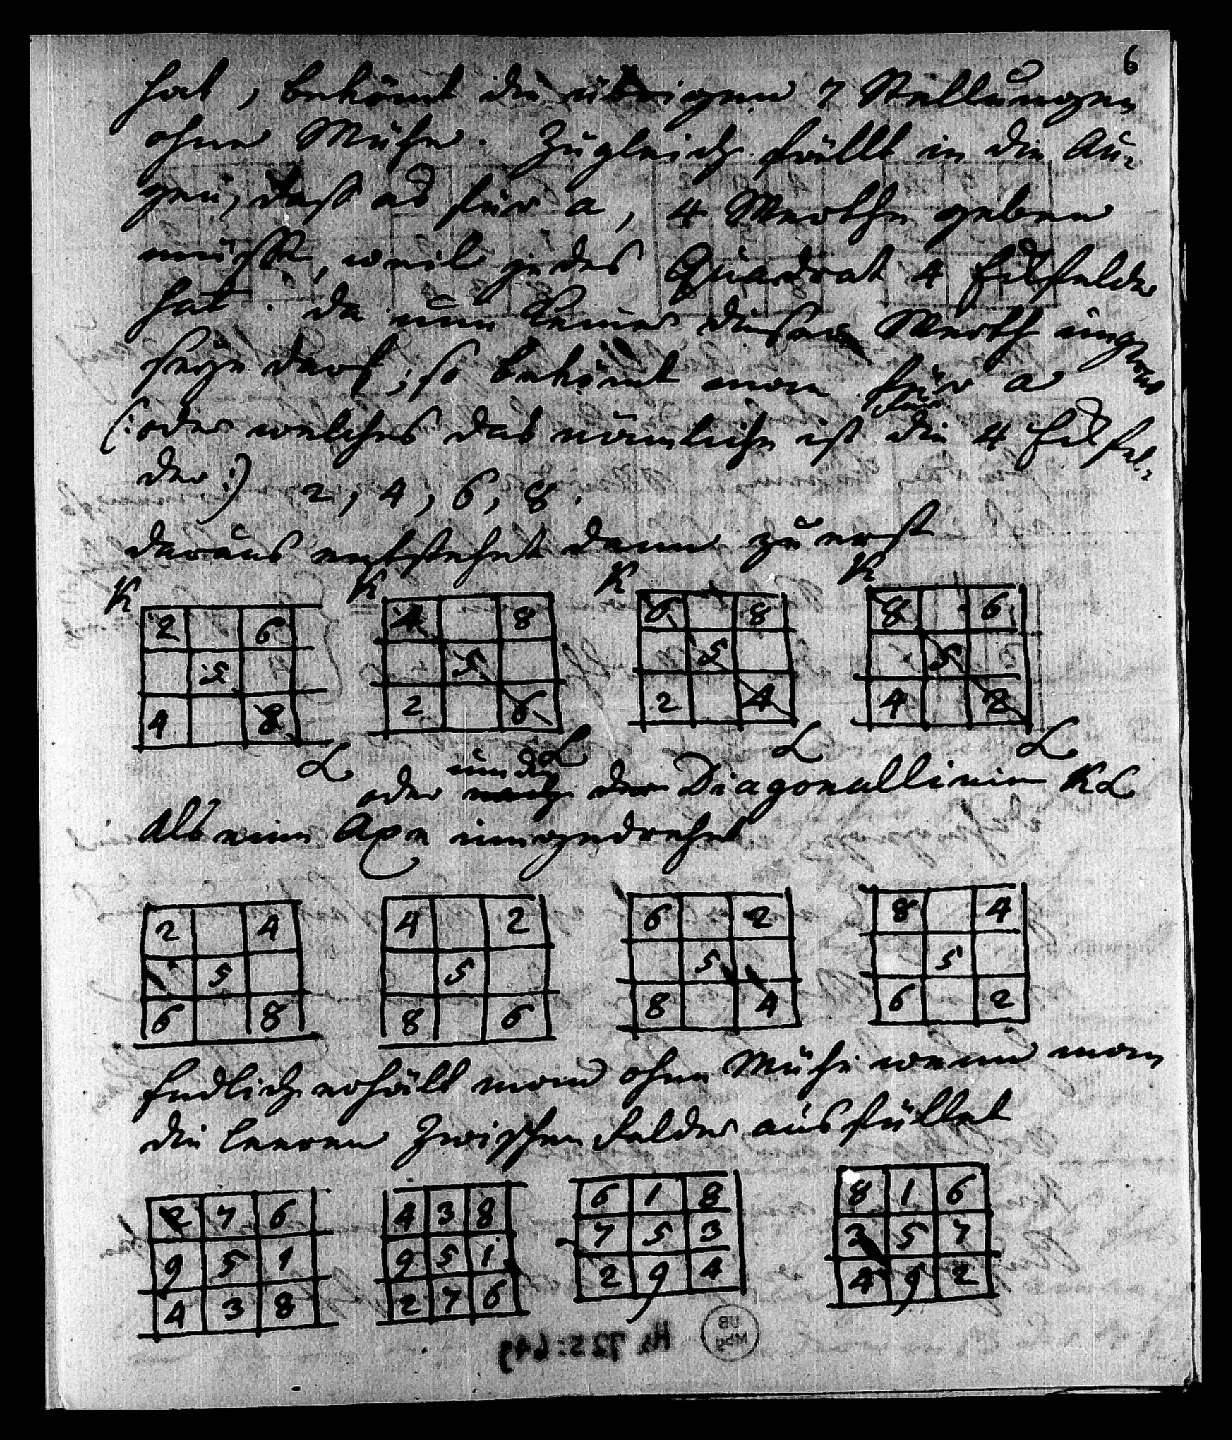 6
hat, bekömt die übrigen 7 Stellungen
ohne Mühe. Zugleich fällt in die Au-
gen, daß es für a, 4 Werthe geben
müßte, weil jedes Quadrat 4 Ekfelder
hat. da nun keiner dieser Werth
seyn darf; so bekömt man für a
(:oder welches das nämliche ist für die 4 Ekfel-
der:) 2, 4, 6, 8.
daraus entstehet denn zu erst
K K K K
2 6 4 8 6 8 8 6
5 5 5 5
4 8 2 6 2 4 4 2
L L L L
oder um die Diagonallinie KL
Als eine Axe umgedrehet
2 4 4 2 6 2 8 4
5 5 5 5
6 8 8 6 8 4 6 2
Endlich erhält man ohne Mühe wenn man
die leeren Zwischen Felder ausfüllet
2 7 6 4 3 8 6 1 8 8 1 6
9 5 1 9 5 1 7 5 3 3 5 7
4 3 8 2 7 6 2 9 4 4 9 2
Hs 725:649
UB
Mbg